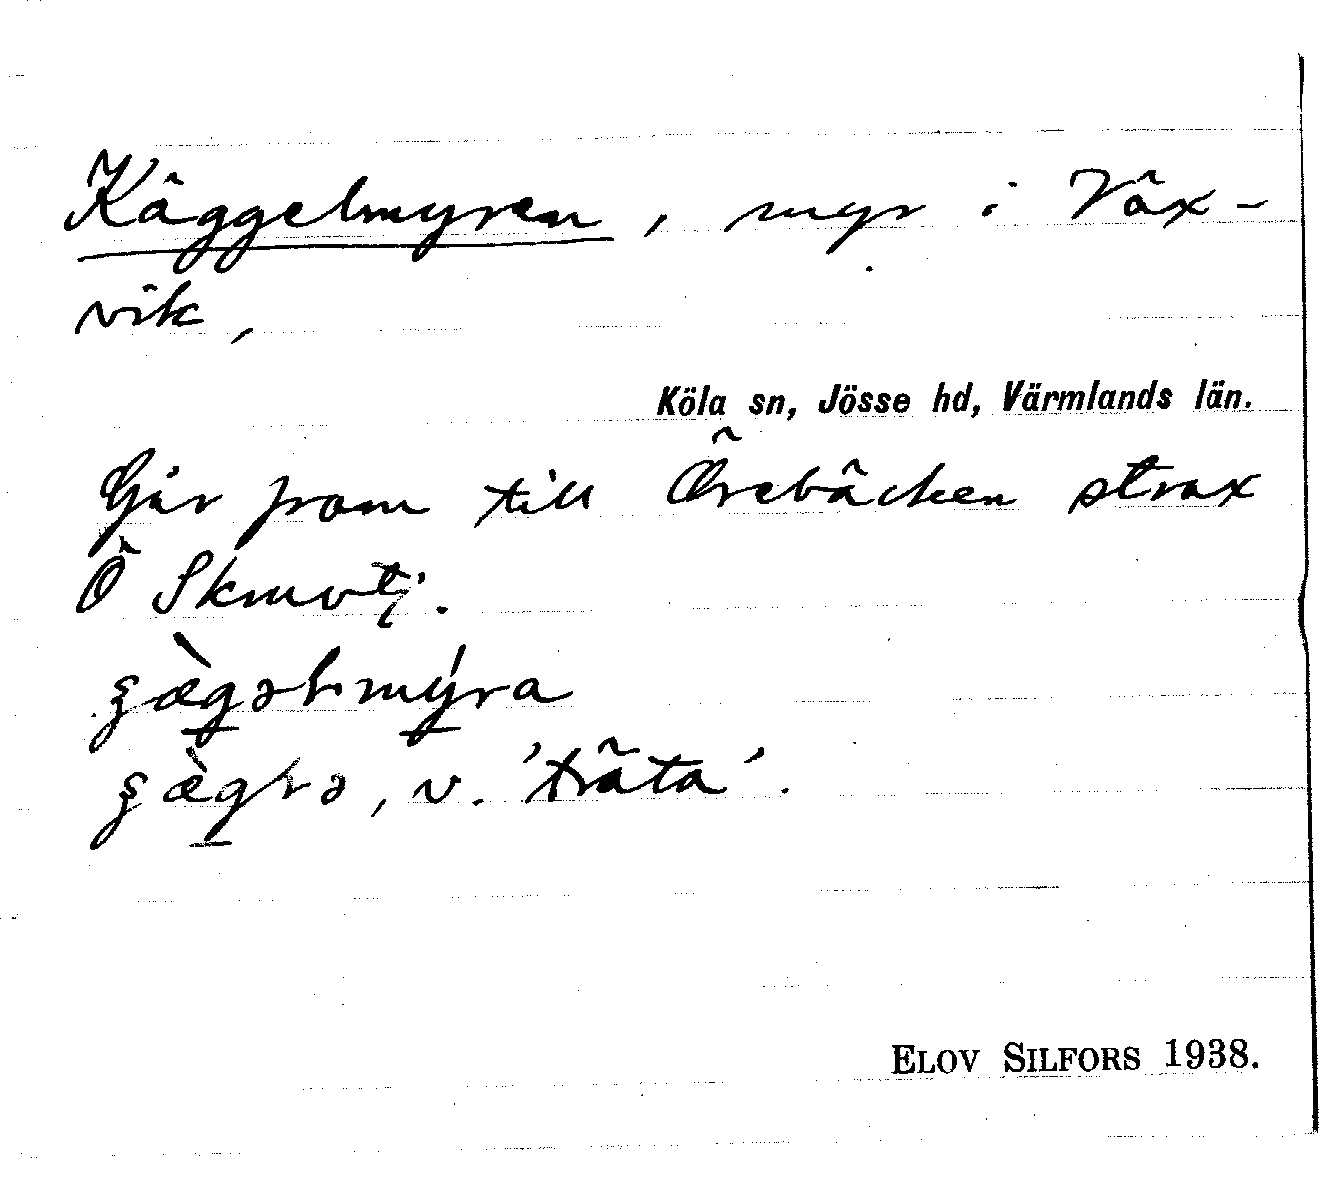 Käggelmyren, myr i Växvik,
Köla sn, Jösse hd, Värmlands län.
Går fram till Örebäcken strax
Ö Skruvtj.
v. 'träta'.
ELOV SILFORS 1938.